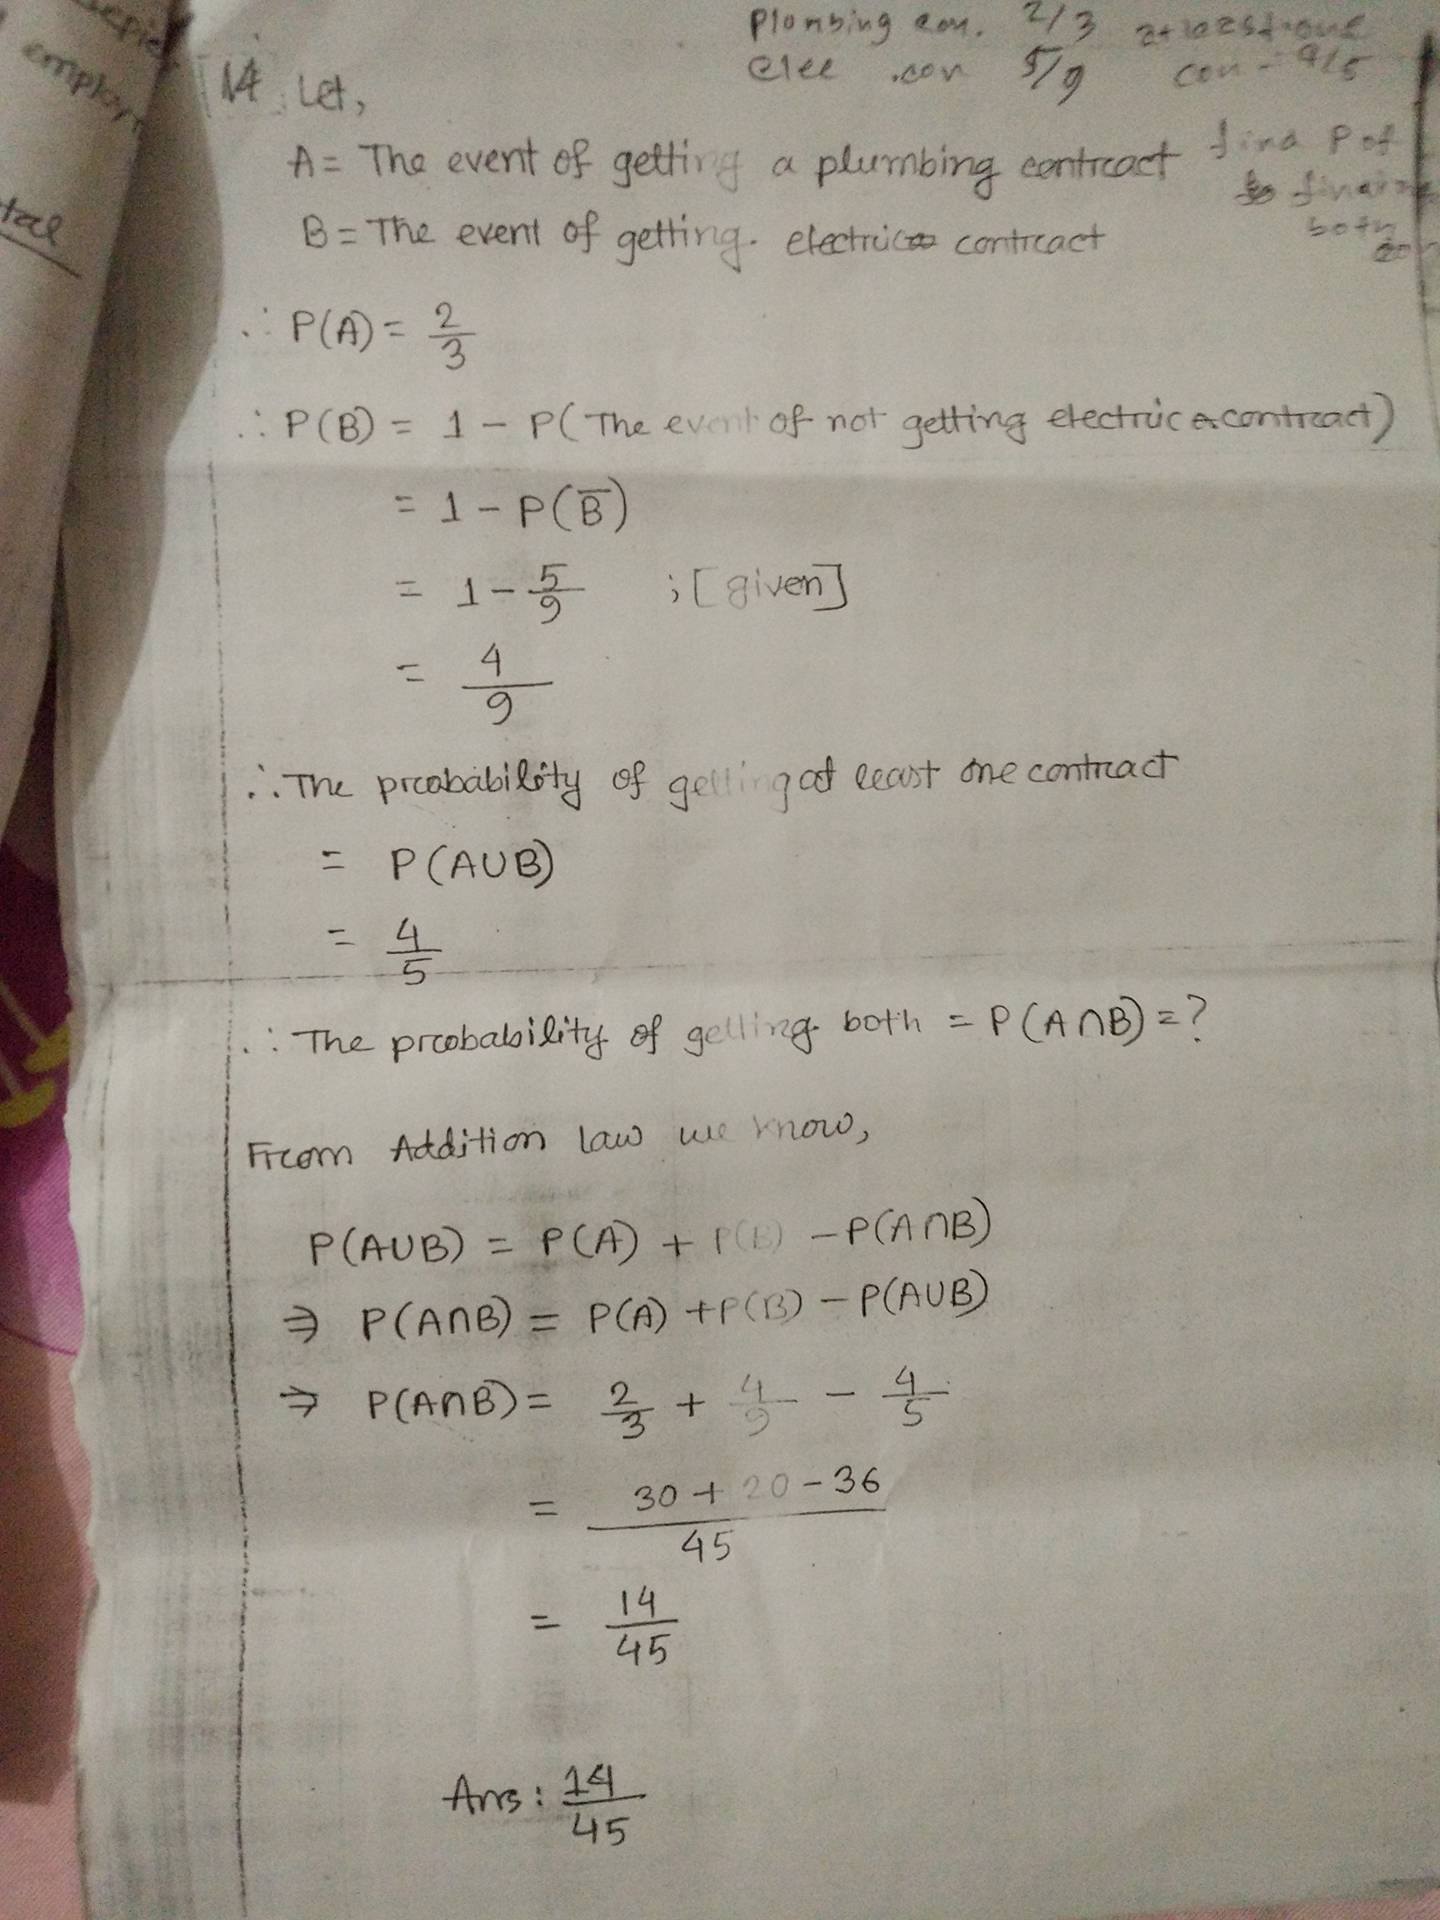 emplo
tal
plonbing con. 2/3 atleast one
elec .con 5/9 con - 4/5
find P of
both
14. Let,
A = The event of getting a plumbing contract
B = The event of getting. electric contract
∴ P(A) = 2/3
∴ P(B) = 1 - P(The event of not getting electric contract)
= 1 - P(B̅)
= 1 - 5/9 ; [given]
= 4/9
∴ The probability of getting at least one contract
= P(A∪B)
= 4/5
∴ The probability of getting both = P(A∩B) = ?
From Addition law we know,
P(A∪B) = P(A) + P(B) - P(A∩B)
⇒ P(A∩B) = P(A) + P(B) - P(A∪B)
⇒ P(A∩B) = 2/3 + 4/9 - 4/5
= 30 + 20 - 36 / 45
= 14/45
Ans: 14/45